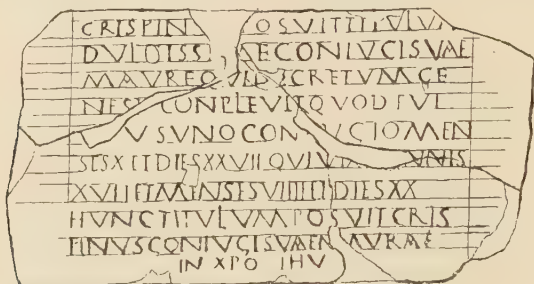 CRISPIN OSVITTITVLVM
DVLCISS MECONIVGISVAE
MAVREQVIDICRETVMGE
NESI CONPLEVITQVODFVI
VSVNOCON VCTOMEN
SESXETDIESXXVIIQVIVI ANNIS
XVIIETMENSESVIIIIDIESXX
HVNCTITVLVMPOSVITCRIS
PINVSCONIVGISVAEN AVRAE
IN XPO IHV